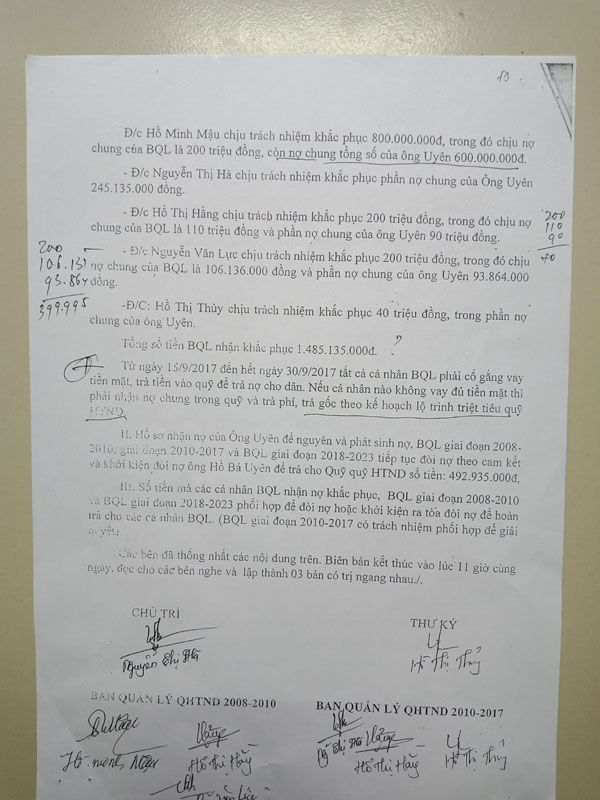 10
Đ/c Hồ Minh Mậu chịu trách nhiệm khắc phục 800.000.000đ, trong đó chịu nợ
chung của BQL là 200 triệu đồng, còn nợ chung tổng số của ông Uyên 600.000.000đ.
- Đ/c Nguyễn Thị Hà chịu trách nhiệm khắc phục phần nợ chung của Ông Uyên
245.135.000 đồng.
- Đ/c Hồ Thị Hằng chịu trách nhiệm khắc phục 200 triệu đồng, trong đó chịu nợ
chung của BQL là 110 triệu đồng và phần nợ chung của ông Uyên 90 triệu đồng.
200
110
90
- Đ/c Nguyễn Văn Lực chịu trách nhiệm khắc phục 200 triệu đồng, trong đó chịu
nợ chung của BQL là 106.136.000 đồng và phần nợ chung của ông Uyên 93.864.000
đồng.
200
106.131
93.864
399.995
-Đ/C: Hồ Thị Thủy chịu trách nhiệm khắc phục 40 triệu đồng, trong phần nợ
chung của ông Uyên.
Tổng số tiền BQL nhận khắc phục 1.485.135.000đ. ?
Từ ngày 15/9/2017 đến hết ngày 30/9/2017 tất cả cá nhân BQL phải cố gắng vay
tiền mặt, trả tiền vào quỹ để trả nợ cho dân. Nếu cá nhân nào không vay đủ tiền mặt thì
phải nhận nợ chung trong quỹ và trả phí, trả gốc theo kế hoạch lộ trình triệt tiêu quỹ
HTND.
II. Hồ sơ nhận nợ của Ông Uyên để nguyên và phát sinh nợ, BQL giai đoạn 2008-
2010, giai đoạn 2010-2017 và BQL giai đoạn 2018-2023 tiếp tục đòi nợ theo cam kết
và khởi kiện đòi nợ ông Hồ Bá Uyên để trả cho Quỹ quỹ HTND số tiền: 492.935.000đ,
III. Số tiền mà các cá nhân BQL nhận nợ khắc phục, BQL giai đoạn 2008-2010
và BQL giai đoạn 2018-2023 phối hợp để đòi nợ hoặc khởi kiện ra tòa đòi nợ để hoàn
trả cho các cá nhân BQL. (BQL giai đoạn 2010-2017 có trách nhiệm phối hợp để giải
quyết).
Các bên đã thống nhất các nội dung trên. Biên bản kết thúc vào lúc 11 giờ cùng
ngày, đọc cho các bên nghe và lập thành 03 bản có trị ngang nhau./.
CHỦ TRÌ
THƯ KÝ
Nguyễn Thị Hà
Hồ Thị Thủy
BAN QUẢN LÝ QHTND 2008-2010
BAN QUẢN LÝ QHTND 2010-2017
Hồ Minh Mậu
Hồ Thị Hằng
Ng Thị Hà
Hồ Thị Hằng
Hồ Thị Thủy